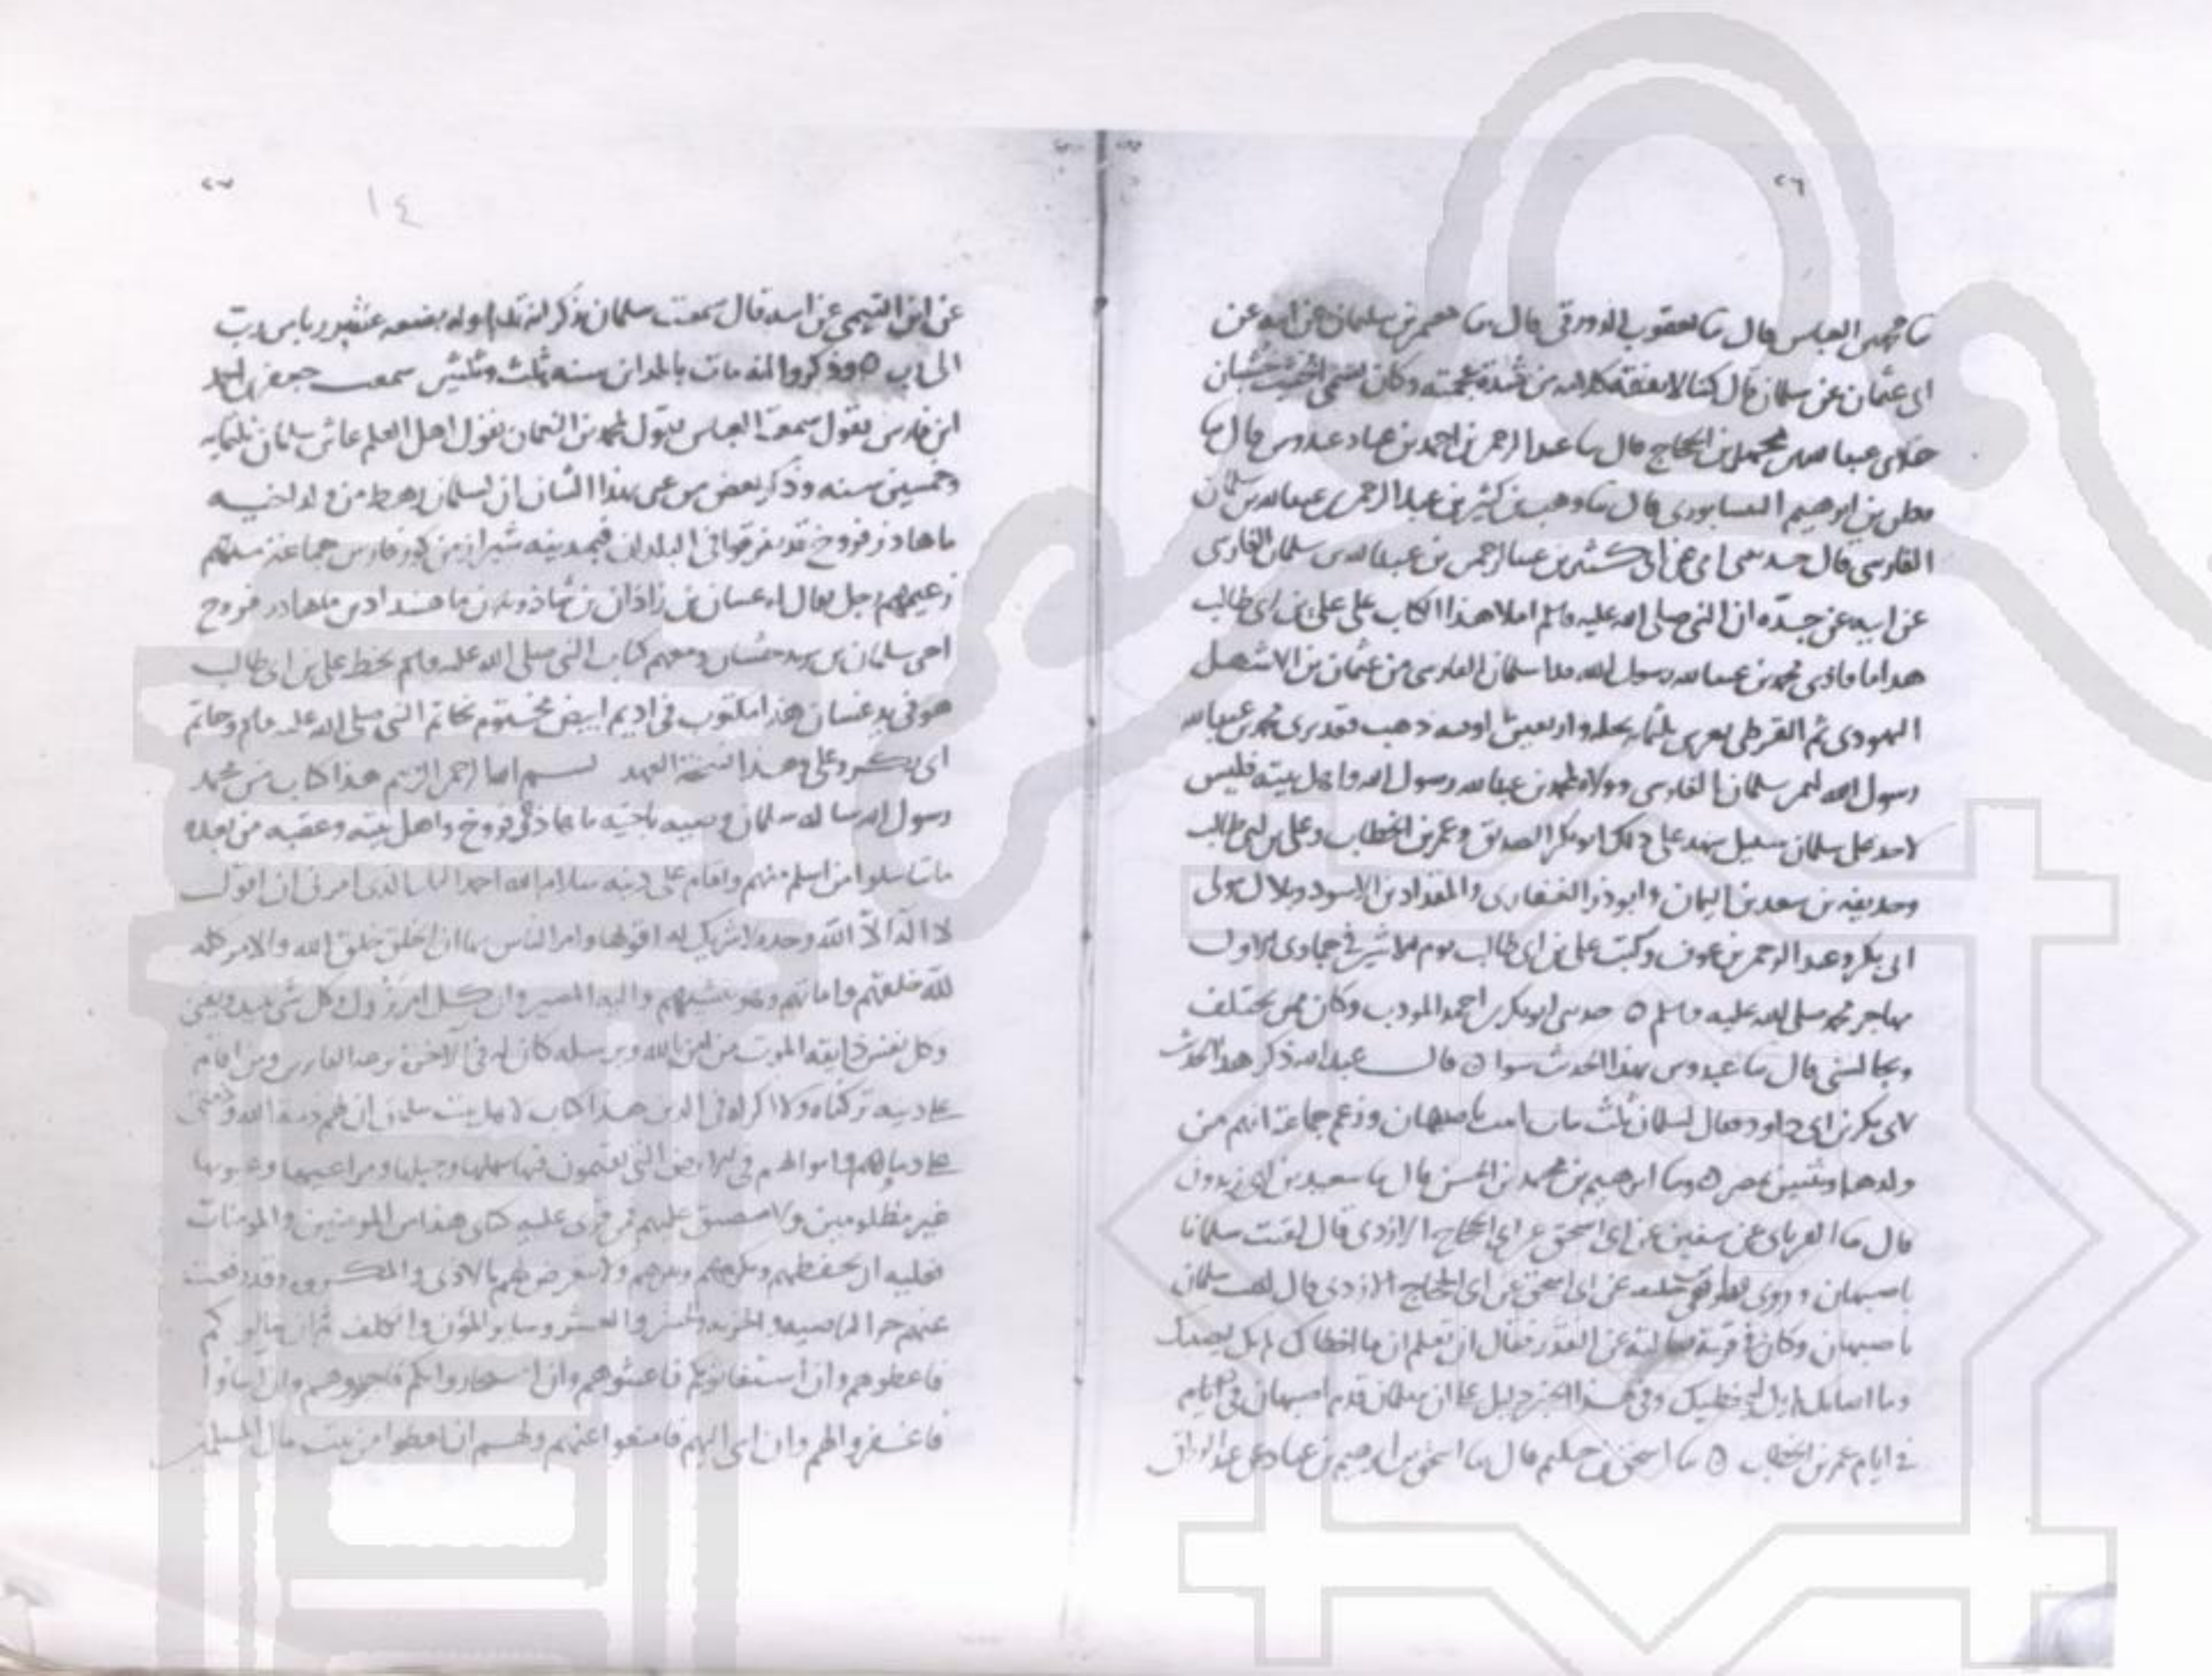 ٢٦
ثنا محمد بن العباس قال ثنا يعقوب الدورقي قال ثنا معمر بن سليمان عن ابيه عن
ابي عثمان عن سلمان قال كنا لا نفقه كلامه من شدة عجمته وكان يسمي الخشب خشبان
محمد بن الحجاج قال ثنا عبد الرحمن بن احمد بن عباد عبدوس قال ثنا
بن ابرهيم النيسابوري قال ثنا وهب بن كثير بن عبد الرحمن بن عبد الله بن سلمان
الفارسي قال حدثتني امي عن ابي كثير بن عبد الرحمن بن عبد الله بن سلمان الفارسي
عن ابيه عن جده ان النبي صلى الله عليه وسلم املا هذا الكتاب على علي بن ابي طالب
هذا ما فادى محمد بن عبد الله رسول الله فدا سلمان الفارسي من عثمان بن الاشهل
اليهودي ثم القرظي بغرس ثلثمايه نخله واربعين اوقيه ذهب فقد برئ محمد بن عبد الله
رسول الله لثمن سلمان الفارسي وولاؤه لمحمد بن عبد الله رسول الله واهل بيته فليس
لاحد على سلمان سبيل شهد على ذلك ابو بكر الصديق وعمر بن الخطاب وعلي بن ابي طالب
وحذيفه بن سعد بن اليمان وابو ذر الغفاري والمقداد بن الاسود وبلال مولى
ابي بكر وعبد الرحمن بن عوف وكتب علي بن ابي طالب يوم الاثنين في جمادى الاول
مهاجر محمد صلى الله عليه وسلم ٥ حدثني ابو بكر بن احمد المودب وكان ممن يختلف
ويجالسني قال ثنا عبدوس بهذا الحديث سوا ٥ قال عبد الله ذكر هذا الحديث
لابي بكر بن ابي داود فقال لسلمان ثلث بنات بنت باصبهان وزعم جماعة انهم من
ولدها وثنتين بمصر ٥ وثنا ابرهيم بن محمد بن الحسن قال ثنا سعيد بن ابي زيدون
قال ثنا الفريابي عن سفين عن ابي اسحق عن ابي الحجاج الازدي قال لقيت سلمان
باصبهان وروى عن ابي اسحق عن ابي الحجاج الازدي قال لقيت سلمان
باصبهان وكان في قرية فسالته عن القدر فقال ان تعلم ان ما اخطاك لم يكن يصيبك
وما اصابك لم يكن يخطيك وفي هذا الخبر دليل على ان سلمان قدم اصبهان في ايام
في ايام عمر بن الخطاب ٥ ثنا اسحق بن حكيم قال ثنا اسحق بن ابرهيم بن عباد عن عبد الرزاق
٢٧
١٤
عن ابن التيمي عن ابيه قال سمعت سلمان يذكر انه تداوله بضعه عشر ربا من رب
الى رب ٥ وذكروا انه مات بالمداين سنه ثلث وثلثين سمعت جعفر بن احمد
ابن فارس يقول سمعت العباس يقول لمحمد بن النعمان يقول اهل العلم عاش سلمان ثلثمايه
وخمسين سنه وذكر بعض من عني بهذا الشان ان لسلمان رهط من ولد اخيه
ماهاذر فروخ قد تفرقوا في البلدان فبمدينه شيراز من كور فارس جماعة منهم
زعيمهم رجل يقال له غسان بن زاذان بن شاذويه بن ماهاذر فروخ
اخي سلمان ومعهم كتاب النبي صلى الله عليه وسلم بخط علي بن ابي طالب
هو في يد غسان هذا مكتوب في اديم ابيض مختوم بخاتم النبي صلى الله عليه وسلم وخاتم
ابي بكر وعلي وهذا نسخة العهد بسم الله الرحمن الرحيم هذا كتاب من محمد
رسول الله ساله سلمان وصيه باخيه ماهاذر فروخ واهل بيته وعقبه من بعده
ما تناسلوا من اسلم منهم واقام على دينه سلام الله احمد اليك الله الذي امرني ان اقول
لا اله الا الله وحده لا شريك له اقولها وامر الناس بها ان الخلق خلق الله والامر كله
لله خلقهم واماتهم وهو ينشرهم واليه المصير وان كل امر يزول وكل شي يبيد ويفنى
وكل نفس ذايقه الموت من امن بالله وبرسله كان له في الآخرة دعه الفايزين ومن اقام
على دينه تركناه ولا اكراه في الدين هذا كتاب لاهل بيت سلمان ان لهم ذمة الله وذمتي
على دمايهم واموالهم في الارض التي يقيمون فيها سهلها وجبلها ومراعيها وعيونها
غير مظلومين ولا مضيق عليهم فمن قرئ عليه كتابي هذا من المومنين والمومنات
فعليه ان يحفظهم ويكرمهم ويبرهم ولا يتعرض لهم بالاذى والمكروه وقد رفعت
عنهم جز الناصيه والجزيه والخمس والعشر وساير المؤن والكلف ثم ان سالوكم
فاعطوهم وان استغاثوكم فاغيثوهم وان استجاروا بكم فاجيروهم وان اساوا
فاغفروا لهم وان اسي اليهم فامنعوا عنهم ولهم ان يعطوا من بيت مال المسلمين